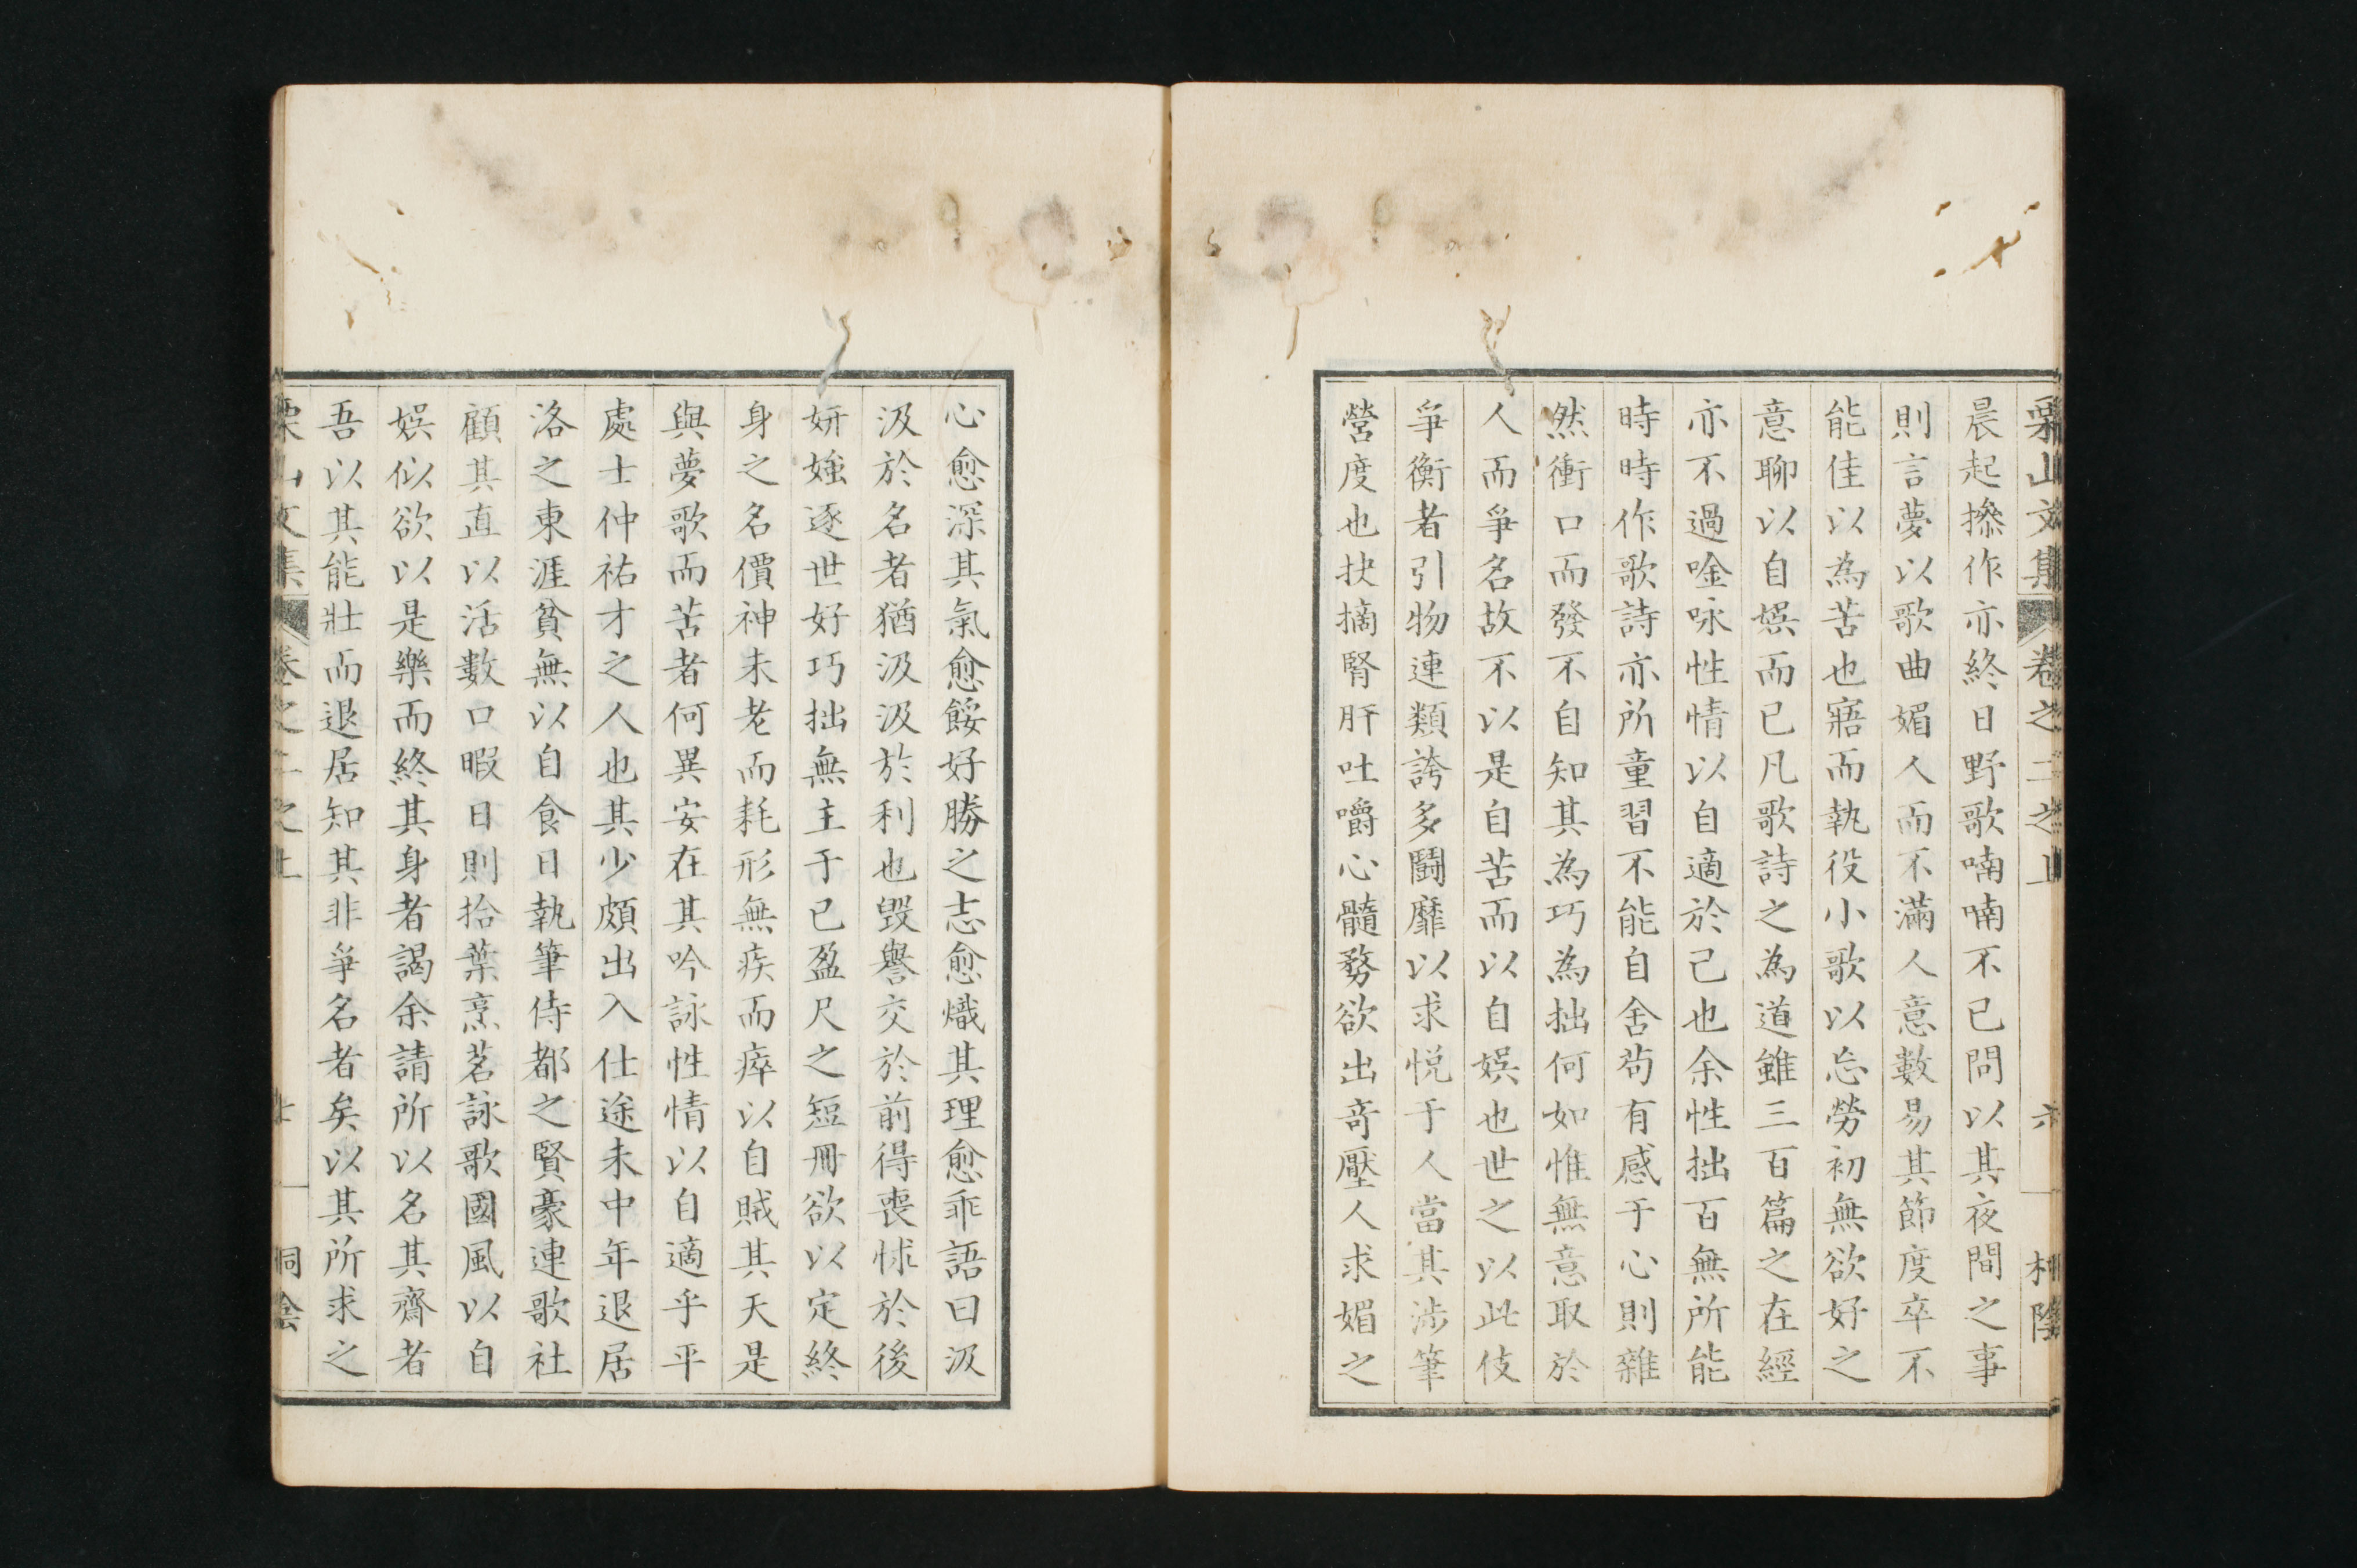 栗山文集 卷之二之上 六 桐陰
晨起搽作亦終日野歌喃喃不已問以其夜間之事
則言夢以歌曲媚人而不滿人意數易其節度卒不
能佳以為苦也寤而執役小歌以忘勞初無欲好之
意聊以自娯而已凡歌詩之為道雖三百篇之在經
亦不過唫咏性情以自適於己也余性拙百無所能
時時作歌詩亦所童習不能自舍苟有感于心則雜
然衝口而發不自知其為巧為拙何如惟無意取於
人而爭名故不以是自苦而以自娯也世之以此伎
爭衡者引物連類誇多鬪靡以求悅于人當其涉筆
營度也抉摘腎肝吐嚼心髓務欲出奇壓人求媚之
心愈深其氣愈餒好勝之志愈熾其理愈乖語曰汲
汲於名者猶汲汲於利也毀譽交於前得喪怵於後
妍媸逐世好巧拙無主于已盈尺之短冊欲以定終
身之名價神未老而耗形無疾而瘁以自賊其天是
與夢歌而苦者何異安在其吟詠性情以自適乎平
處士仲祐才之人也其少頗出入仕途未中年退居
洛之東涯貧無以自食日執筆侍都之賢豪連歌社
顧其直以活數口暇日則拾葉烹茗詠歌國風以自
娯似欲以是樂而終其身者謁余請所以名其齋者
吾以其能壯而退居知其非爭名者矣以其所求之
栗山文集 卷之二之上 七 桐陰